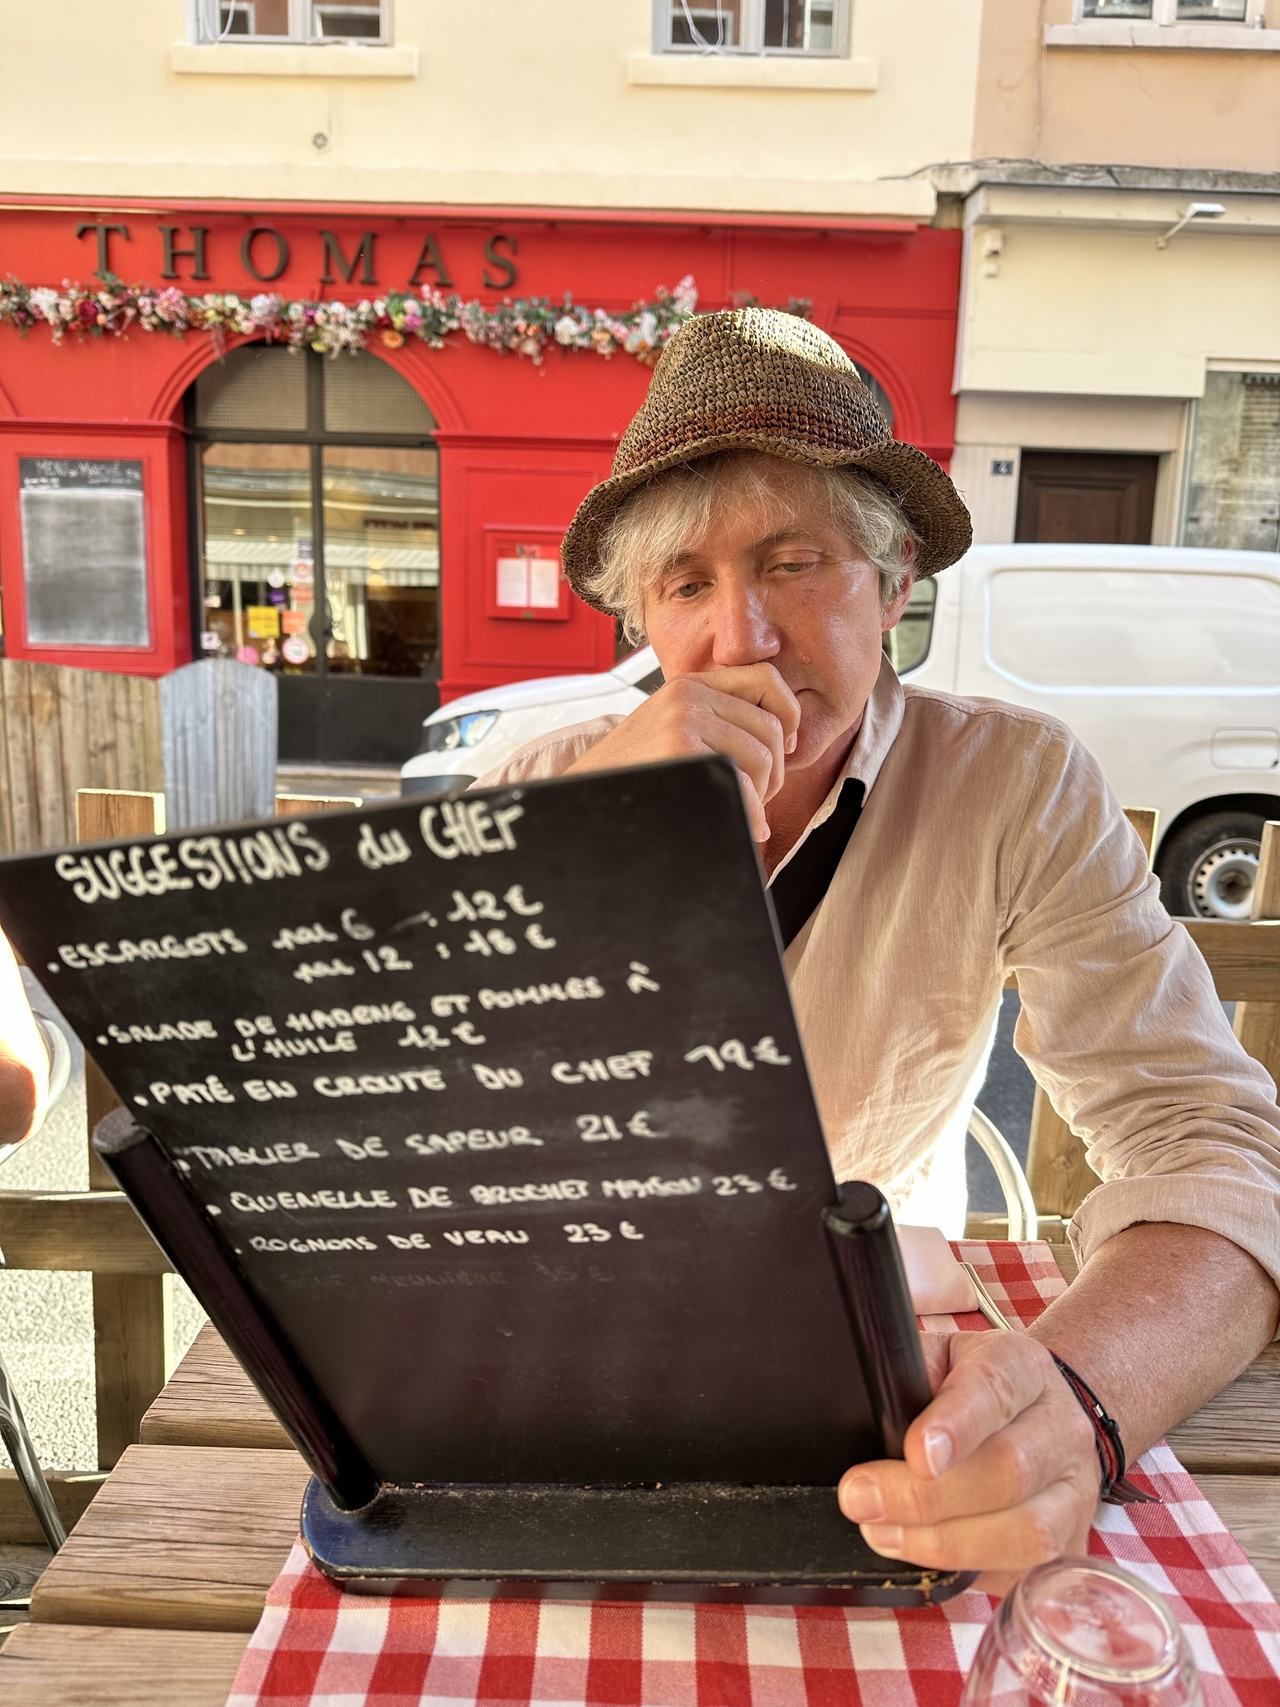 THOMAS
MENU du MARCHÉ
4
SUGGESTIONS du CHEF
• ESCARGOTS par 6 : 12 €
par 12 : 18 €
• SALADE DE HARENG ET POMMES À
L'HUILE 12 €
• PATÉ EN CROUTE DU CHEF 19 €
• TABLIER DE SAPEUR 21 €
• QUENELLE DE BROCHET MAISON 23 €
• ROGNONS DE VEAU 23 €